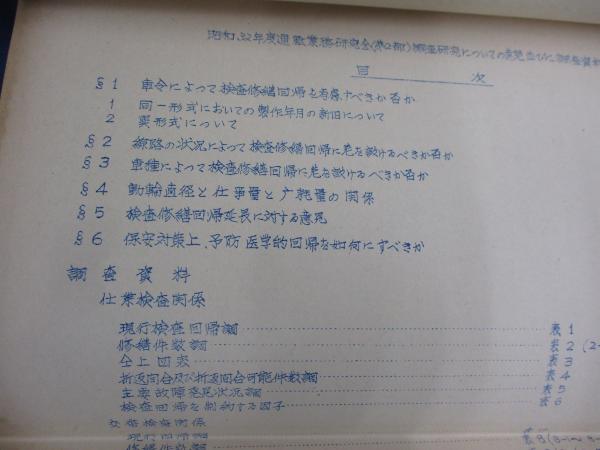 昭和32年度運転業務研究会(第2部)検査研究についての意見並びに調査資料
目 次
§1 車令によって検査修繕回帰を考慮すべきか否か
1 同一形式においての製作年月の新旧について
2 異形式について
§2 線路の状況によって検査修繕回帰に差を設けるべきか否か
§3 車種によって検査修繕回帰に差を設けるべきか否か
§4 動輪直径と仕事量と摩耗量の関係
§5 検査修繕回帰延長に対する意見
§6 保安対策上、予防医学的回帰を如何にすべきか
調査資料
仕業検査関係
現行検査回帰調 表1
修繕件数調 表2 (2-
仝上図表 表3
折返同合及び折返同合可能件数調 表4
主要故障発見状況調 表5
検査回帰を制約する因子 表6
交番検査関係
現行回帰調
修繕件数